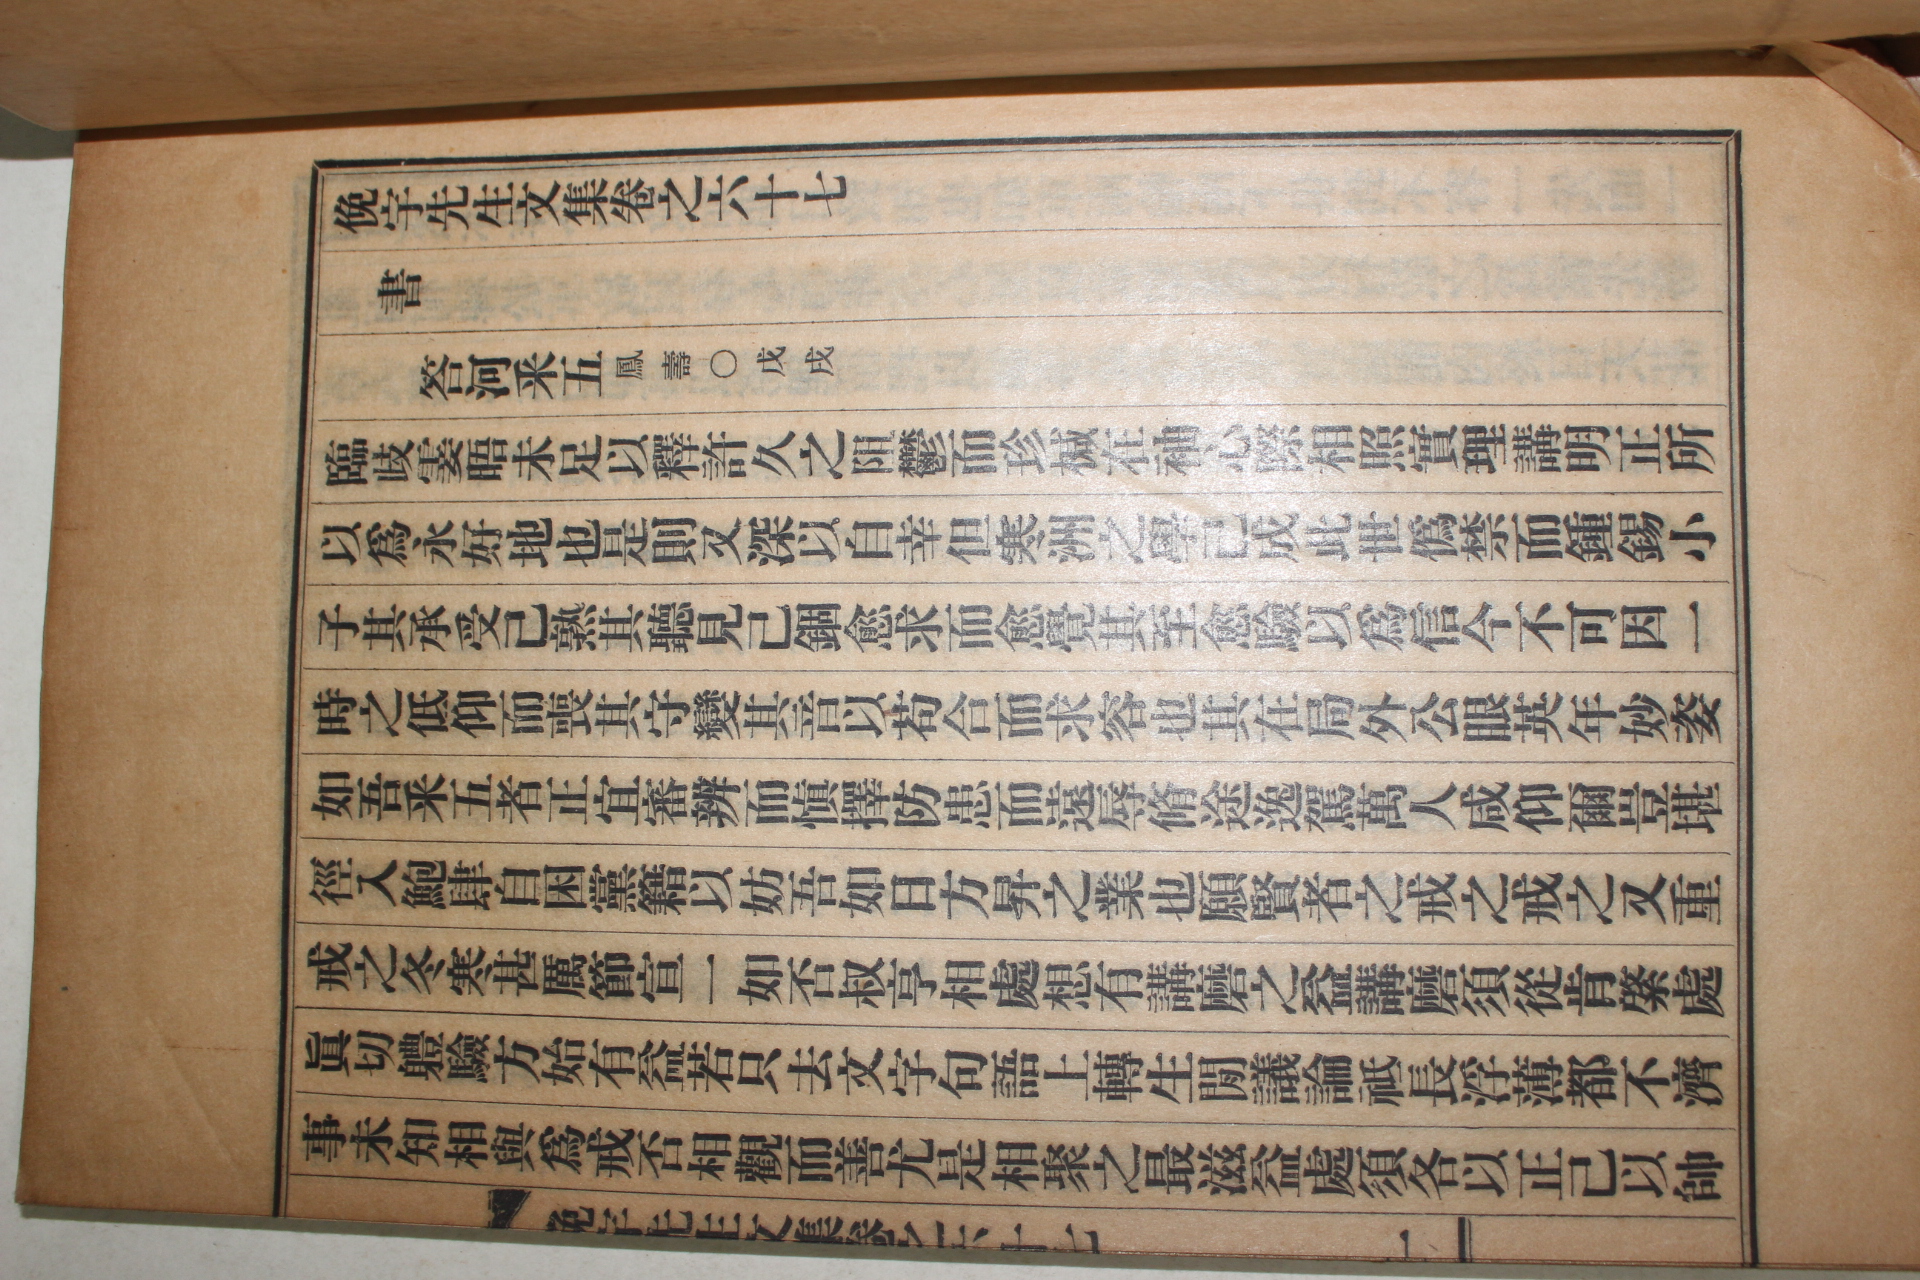 俛宇先生文集卷之六十七
書
答河采五鳳壽○戊戌
臨歧霎晤未足以釋許久之阻鬱而珍椷在袖心緊相照實理講明正所
以爲永好地也是則又深以自幸但寒洲之學已成此世僞禁而鍾錫小
子其承受已熟其聽見已錮愈求而愈覺其至愈驗以爲信今不可因一
時之低仰而喪其守變其言以苟合而求容也其在局外公眼英年妙姿
如吾采五者正宜審辨而愼擇防患而遠辱脩途逸駕萬人咸仰爾豈堪
徑入鮑肆自困黨籍以妨吾如日方昇之業也願賢者之戒之戒之又重
戒之冬寒甚厲節宣一如否叔亨相處想有講磨之益講磨須從肯綮處
眞切軆驗方始有益若只去文字句語上轉生閒議論祗長浮薄都不濟
事未知相與爲戒否相觀而善尤是相聚之最滋益處須各以正己以帥
俛宇先生文集卷之六十七 一